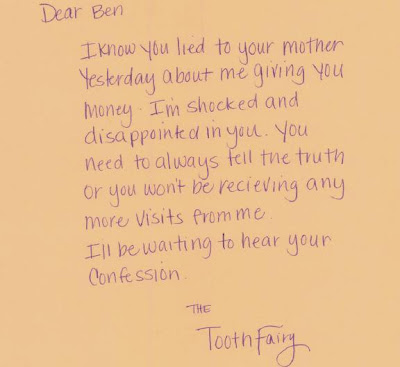 Dear Ben
I know you lied to your mother
Yesterday about me giving you
Money. I'm shocked and
disappointed in you. You
need to always tell the truth
or you won't be recieving any
more visits from me.
I'll be waiting to hear your
Confession.
THE
Tooth Fairy